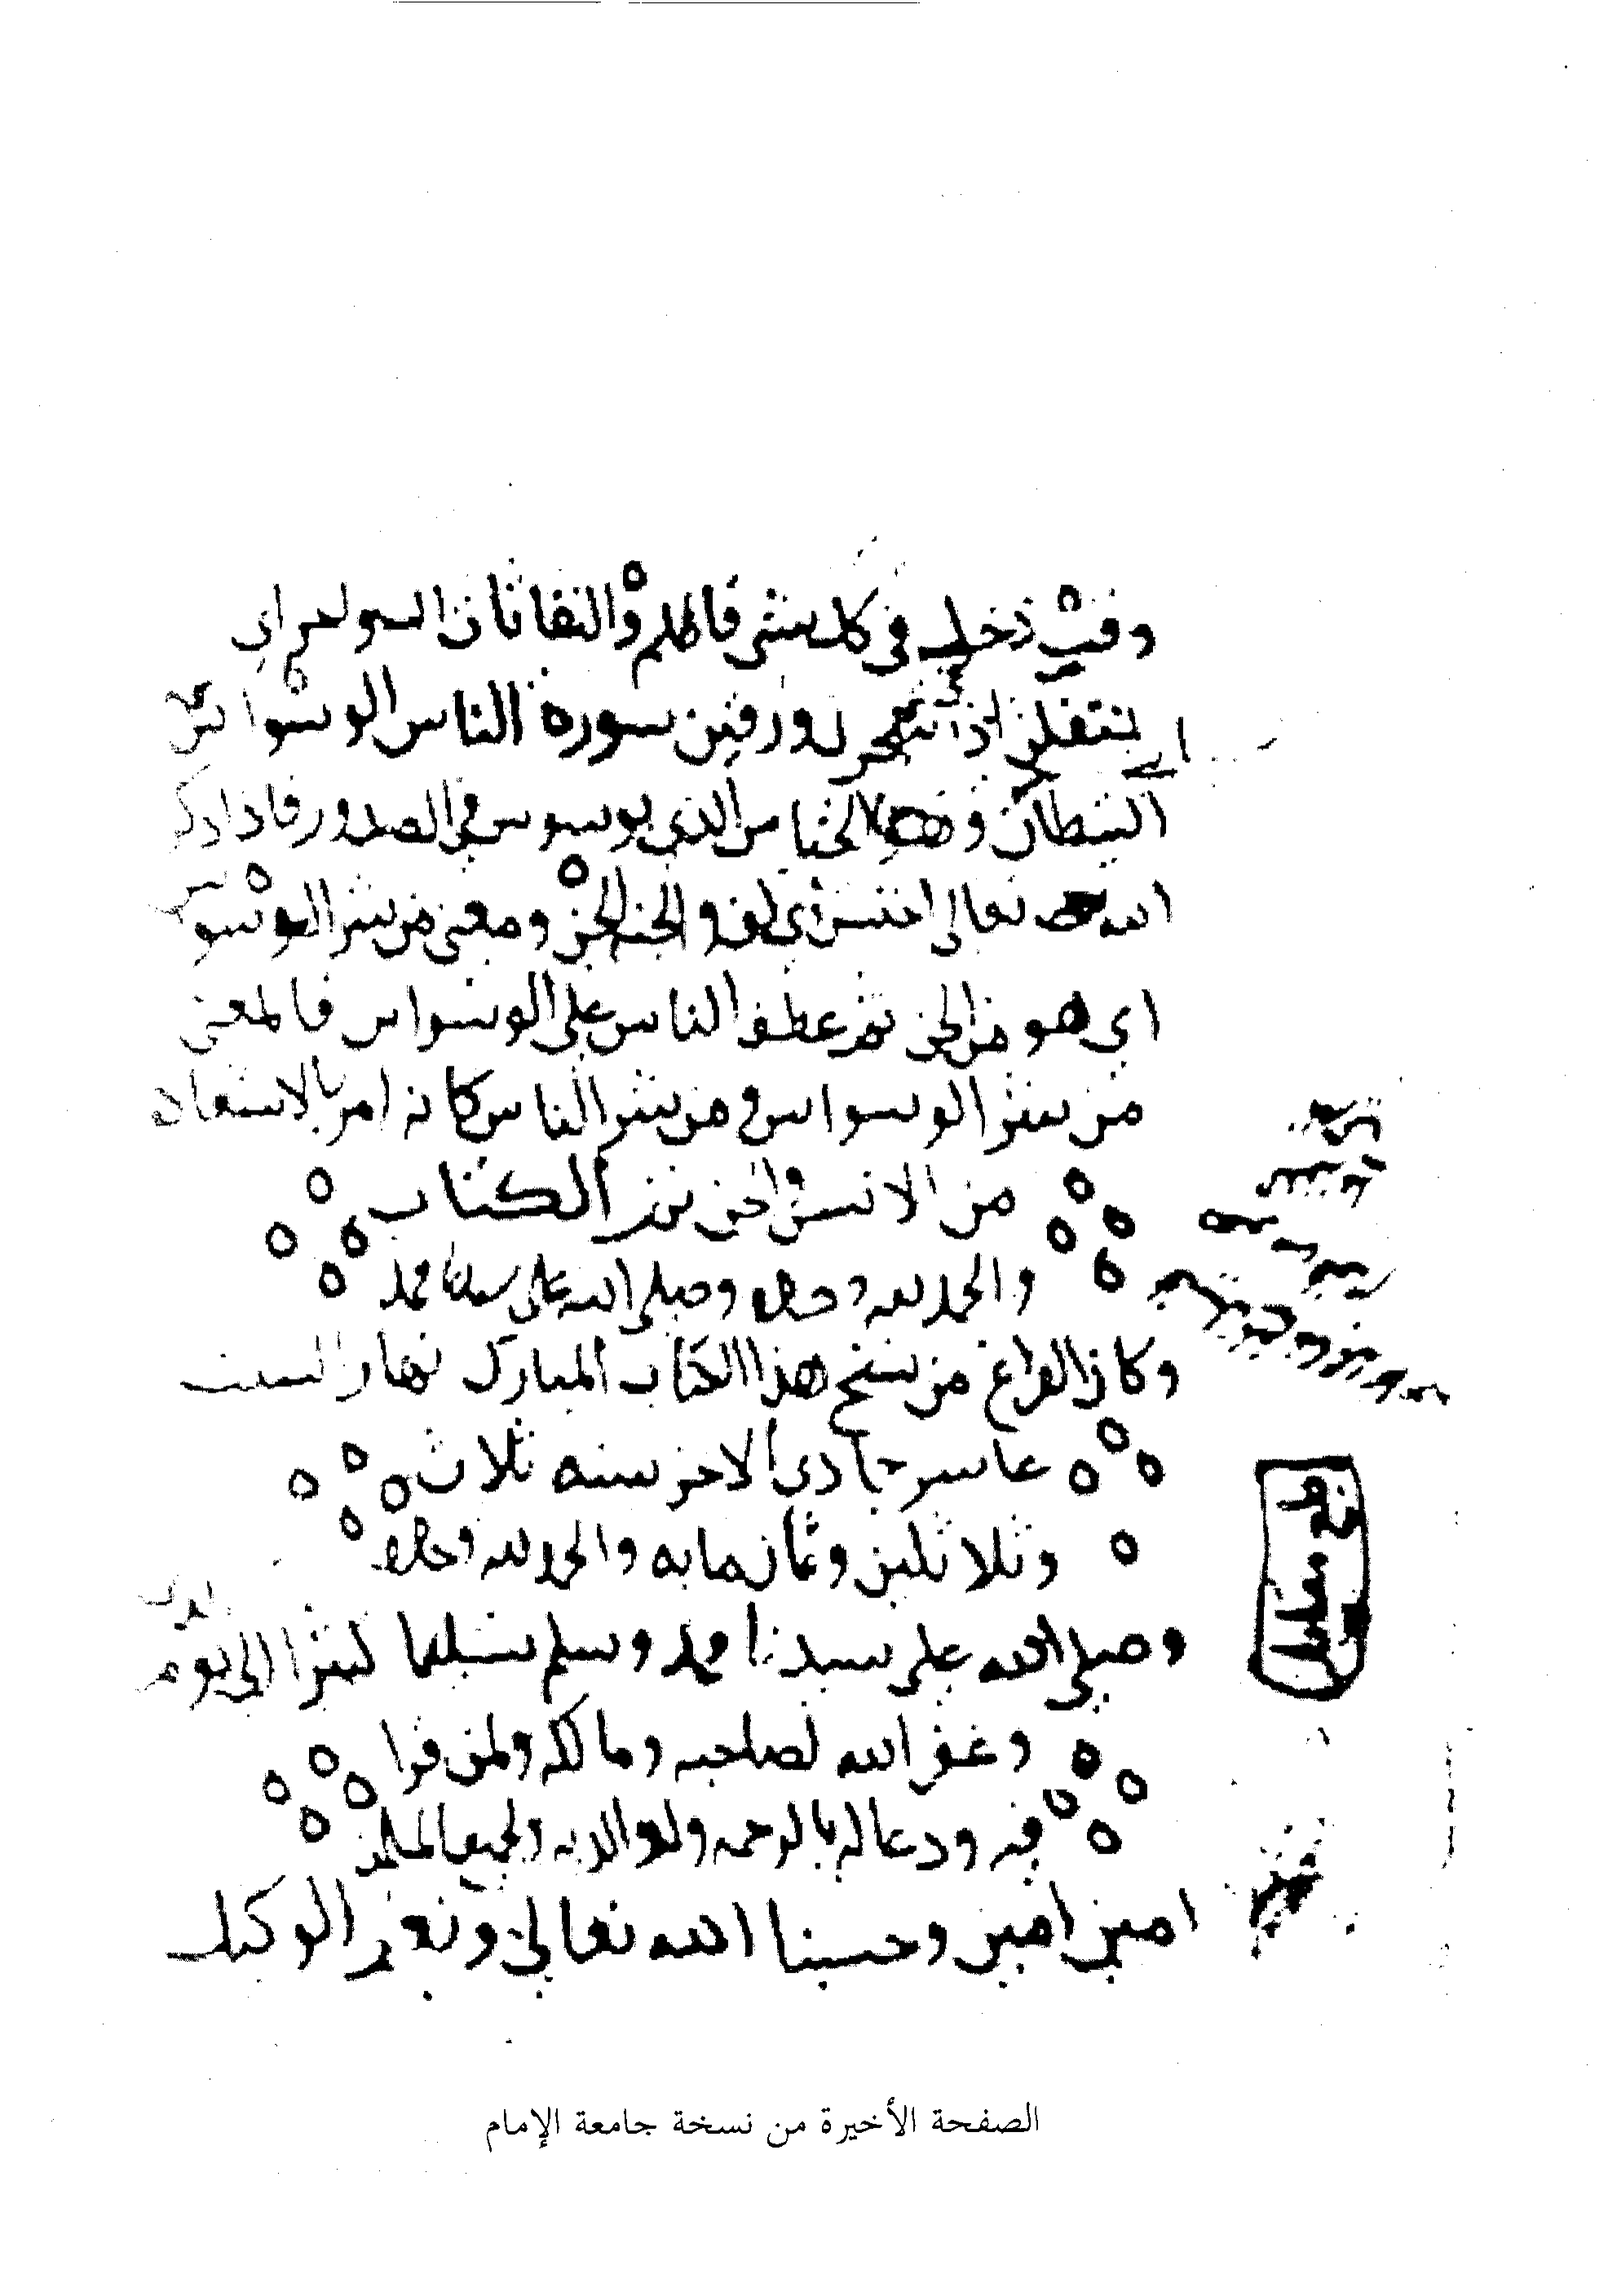 وقب دخل في كل شي فاظلم والنفاثات السواحر اي
ينتفلن اذا سحرن ورقين سورة الناس الوسواس
الشيطان وهو الخناس الذي يوسوس في الصدور فاذا ذكر
الله تعالى اختنس أي كف والجنه الجن ومعنى من شر الوسواس
اي هو من الجن ثم عطف الناس على الوسواس فالمعنى
من شر الوسواس ومن شر الناس كانه امر بالاستعاذه
من الانس والجن تم الكتاب
والحمد لله وحده وصلى الله على سيدنا محمد
وكان الفراغ من نسخ هذا الكتاب المبارك نهار السبت
عاشر جمادى الاخر سنه ثلاث
وثلاثين وثمانمايه والحمد لله وحده
وصلى الله على سيدنا محمد وسلم تسليما كثيرا الى يوم الدين
وغفر الله لصاحبه ومالكه ولمن قرا
فيه ودعا له بالرحمه ولوالديه ولجميع المسلمين
امين امين وحسبنا الله تعالى ونعم الوكيل
الصفحة الأخيرة من نسخة جامعة الإمام